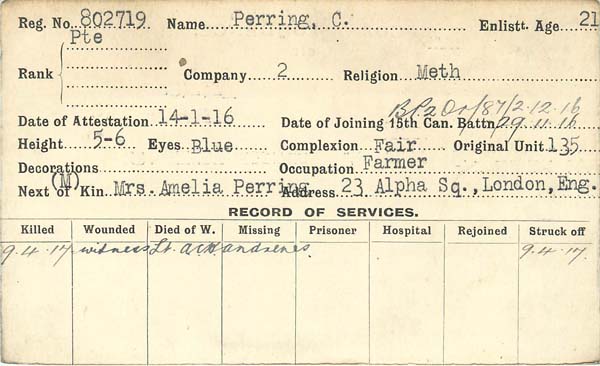 Reg. No. 802719 Name Perring, C. Enlistt. Age 21
Pte
Rank Company 2 Religion Meth
Date of Attestation 14-1-16 Date of Joining 15th Can. Battn 29.11.16
Height 5-6 Eyes Blue Complexion Fair Original Unit 135
Decorations Occupation Farmer
(M)
Next of Kin Mrs. Amelia Perring Address 23 Alpha Sq., London, Eng.
RECORD OF SERVICES.
Killed Wounded Died of W. Missing Prisoner Hospital Rejoined Struck off
9.4.17 witness Lt. 9.4.17.